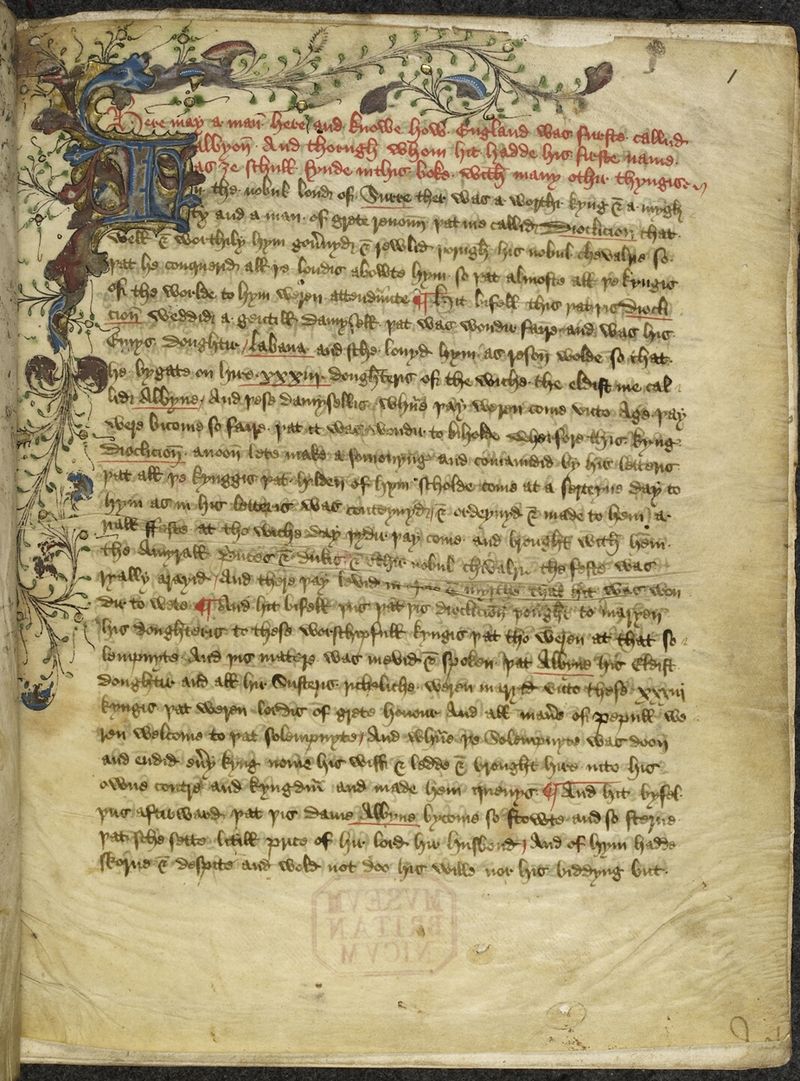 1
Here may a man here and knowe how England was firste callid
Albyon And thorugh whom hit hadde his firste name
as ȝe schull fynde in this boke with many othir thyngis
In the nobul lond of Surre ther was a worthi kyng & a mygh
ty and a man of grete renoun þat me callid Dioclician that
well & worthily hym gouernyd & rewlid þorugh his nobul chevalrie so
þat he conquerid all þe londis abowte hym so þat almoste all þe kyngis
of the worlde to hym weren attendaunte ¶ Hit bifell this þat þis Diocli
cion weddid a gentill damysell þat was wondir faire and was his
Emys doughtir labana and sche lovyd hym as reson wolde so that
he bygate on hire xxxiij doughteris of the wiche the eldist me cal
lid Albyne And þese damysellis whne þay weren come vnto Age þay
were bicome so faire þat it was wondir to biholde wherfore this kyng
Dioclician anoon lete make a somonyng and comaundid by his letteris
þat all þe kynggis þat hylden of hym scholde come at a serteyne day to
hym as in his letteris was conteynyd & ordeynyd & made to hem a
riall ffeste at the wiche day þydir þay come and brought with hem
the Amyrall & dukis & othir nobul chivalry the feste was
ryally arayid And there þay levid in joie & myrthe that hit was won
dir to wete ¶ And hit bifell þus þat þis dioclician þought to maryen
his doughteris to these worschipfull kyngis þat tho weren at that so
lempnyte And þis matere was mevid & spoken þat Albyne his Eldist
doughtir and all hir Susteris richeliche weren maryed vnto these xxxiij
kyngis þat weren lordis of grete honour And all maner of pepull we
ren welcome to þat solempnyte And whne þe Solempnyte was doon
and endid euery kyng nome his wiff & ledde & brought hire into his
owne contre and kyngdum and made hem quenys ¶ And hit byfel
þus aftirward þat þis dame Albyne bycome so stowte and so sterne
þat sche sette litill price of hir lord hir husbond And of hym hadde
skorne & despite and wold not doo his wille nor his biddyng but
MVSEVM
BRITAN
NICVM